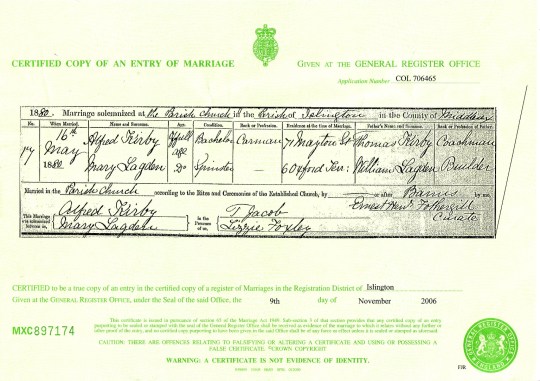 CERTIFIED COPY OF AN ENTRY OF MARRIAGE
GIVEN AT THE GENERAL REGISTER OFFICE
Application Number COL 706465
1880. Marriage solemnized at the Parish Church in the Parish of Islington in the County of Middlesex
No. When Married. Name and Surname. Age. Condition. Rank or Profession. Residence at the time of Marriage. Father's Name and Surname. Rank or Profession of Father.
16th May 1880 Alfred Kirby Of full age Bachelor Carman 71 Mayton St Thomas Kirby Coachman
Mary Lagden Do Spinster — William Lagden Builder
Married in the Parish Church according to the Rites and Ceremonies of the Established Church, by or after Banns by me,
This Marriage was solemnized between us, Alfred Kirby Mary Lagden in the Presence of us, T Jacob Lizzie Foxley Ernest Heny Fothergill Curate
CERTIFIED to be a true copy of an entry in the certified copy of a register of Marriages in the Registration District of Islington
Given at the GENERAL REGISTER OFFICE, under the Seal of the said Office, the 9th day of November 2006
MXC 897174
This certificate is issued in pursuance of section 65 of the Marriage Act 1949. Sub-section 3 of that section provides that any certified copy of an entry
purporting to be sealed or stamped with the seal of the General Register Office shall be received as evidence of the marriage to which it relates without any further or
other proof of the entry, and no certified copy purporting to have been given in the said Office shall be of any force or effect unless it is sealed or stamped as aforesaid.
CAUTION: THERE ARE OFFENCES RELATING TO FALSIFYING OR ALTERING A CERTIFICATE AND USING OR POSSESSING A
FALSE CERTIFICATE. ©CROWN COPYRIGHT
WARNING: A CERTIFICATE IS NOT EVIDENCE OF IDENTITY.
GENERAL REGISTER OFFICE
ENGLAND